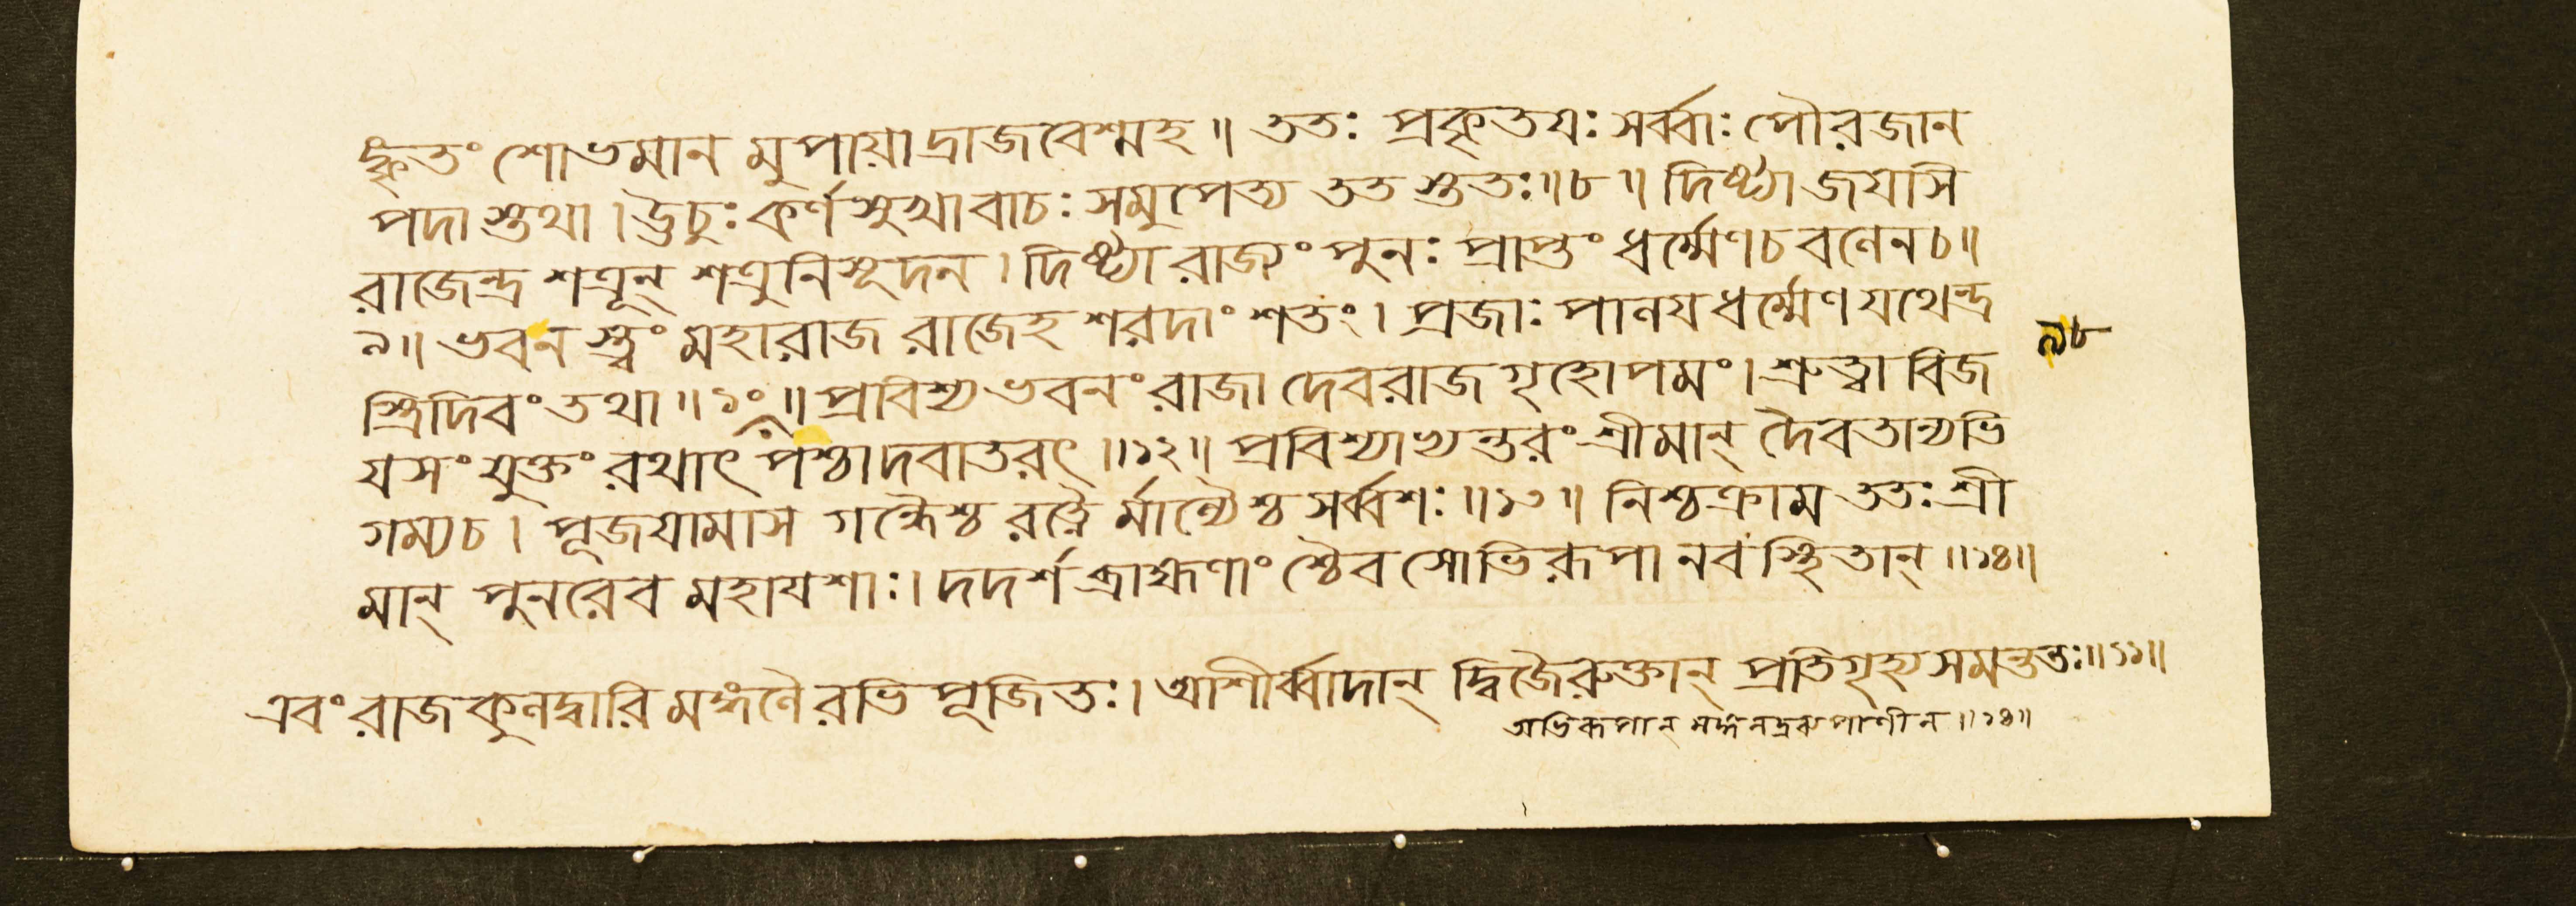 ঙ্কৃতং শোভমান মুপায়াদ্রাজবেশ্মহ ॥ ততঃ প্রকৃতযঃ সর্ব্বাঃ পৌরজান
পদা স্তথা । ঊচুঃ কর্ণসুখাবাচঃ সমুপেত্য তত স্ততঃ ॥৮॥ দিষ্ট্যা জযসি
রাজেন্দ্র শত্রূন্ শত্রুনিসূদন । দিষ্ট্যা রাজ্যং পুনঃ প্রাপ্তং ধর্ম্মেণ চ বলেন চ ॥
৯॥ ভবন স্ত্বং মহারাজ রাজেহ শরদাং শতং । প্রজাঃ পালয ধর্ম্মেণ যথেন্দ্র
স্ত্রিদিবং তথা ॥১০॥ প্রবিশ্য ভবনং রাজা দেবরাজ গৃহোপমং । শ্রুত্বা বিজ
যসংযুক্তং রথাৎ পশ্চাদবাতরৎ ॥১২॥ প্রবিশ্যাভ্যন্তরং শ্রীমান্ দৈবতান্যভি
গম্য চ । পূজযামাস গন্ধৈশ্চ রত্নৈ র্মাল্যৈশ্চ সর্ব্বশঃ ॥১৩॥ নিশ্চক্রাম ততঃ শ্রী
মান্ পুনরেব মহাযশাঃ । দদর্শ ব্রাহ্মণাং শ্চৈব সোভিরূপা নবস্থিতান্ ॥১৪॥
৯৮
এবং রাজকুলদ্বারি মঙ্গলৈ রভি পূজিতঃ । আশীর্ব্বাদান্ দ্বিজৈরুক্তান্ প্রতিগৃহ্য সমন্ততঃ ॥১১॥
অভিরূপান্ ॥১৪॥